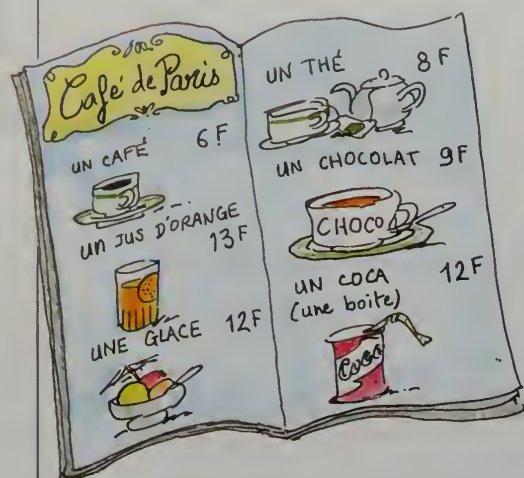 Café de Paris
UN CAFÉ 6F
UN JUS D'ORANGE
13F
UNE GLACE 12F
UN THÉ 8F
UN CHOCOLAT 9F
CHOCO
UN COCA 12F
(une boite)
Coca